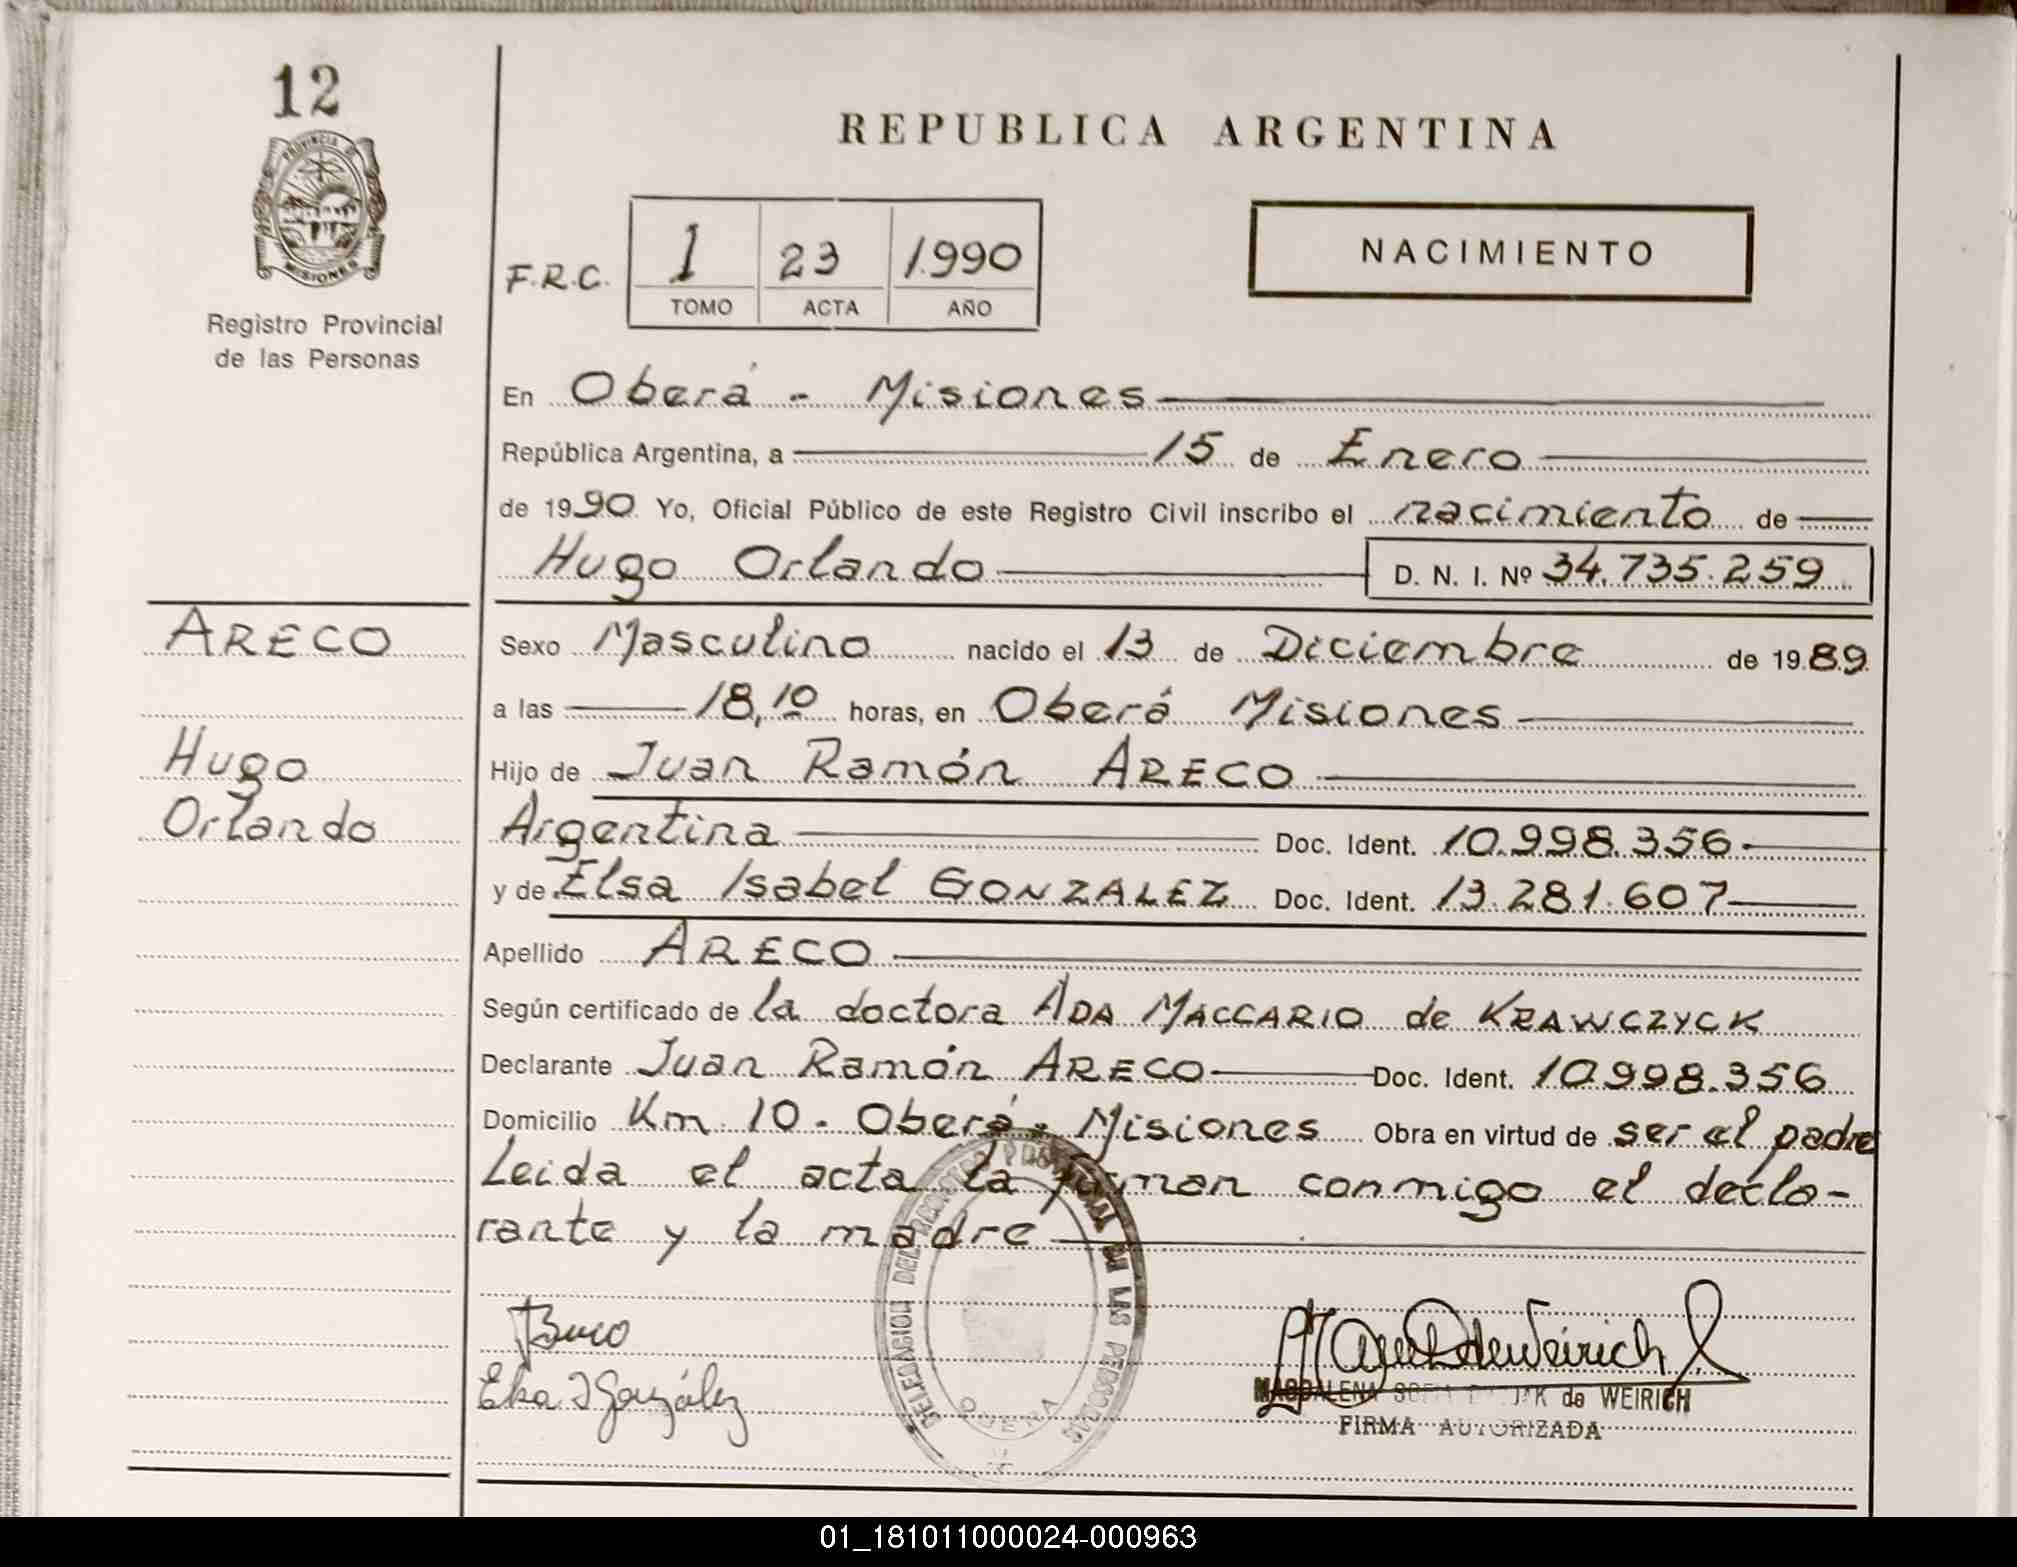 12
PROVINCIA DE
MISIONES
Registro Provincial
de las Personas
REPUBLICA ARGENTINA
F.R.C. 1 23 1.990
TOMO ACTA AÑO
NACIMIENTO
En Oberá - Misiones
República Argentina, a 15 de Enero
de 1990 Yo, Oficial Público de este Registro Civil inscribo el nacimiento de
Hugo Orlando D. N. I. Nº 34.735.259
ARECO
Hugo
Orlando
Sexo Masculino nacido el 13 de Diciembre de 1989
a las 18,10 horas, en Oberá Misiones
Hijo de Juan Ramón ARECO
Argentina Doc. Ident. 10.998.356
y de Elsa Isabel GONZALEZ Doc. Ident. 13.281.607
Apellido ARECO
Según certificado de la doctora ADA MACCARIO de KRAWCZYCK
Declarante Juan Ramón ARECO Doc. Ident. 10.998.356
Domicilio Km 10 - Oberá - Misiones Obra en virtud de ser el padre
Leida el acta la firman conmigo el decla-
rante y la madre
DELEGACION DEL REGISTRO PROVINCIAL DE LAS PERSONAS
Elsa I González
MAGDALENA SOFIA de WEIRICH
FIRMA AUTORIZADA
01_181011000024-000963